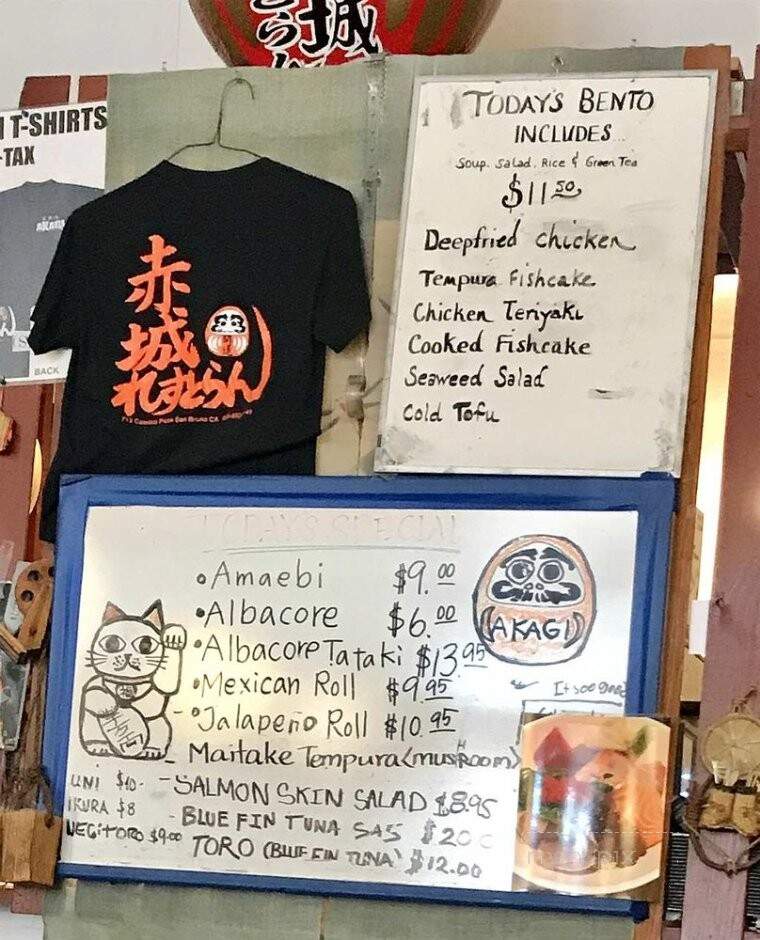 城
らん
T-SHIRTS
TAX
BACK
赤
城
れすとらん
TODAY'S BENTO
INCLUDES
Soup, Salad, Rice & Green Tea
$11.50
Deepfried chicken
Tempura Fishcake
Chicken Teriyaki
Cooked Fishcake
Seaweed Salad
Cold Tofu
TODAY'S SPECIAL
•Amaebi $9.00
•Albacore $6.00
•Albacore Tataki $13.95
•Mexican Roll $9.95
-•Jalapeño Roll $10.95
- Maitake Tempura (mushroom)
-SALMON SKIN SALAD $8.95
- BLUE FIN TUNA SAS $20
TORO (BLUE FIN TUNA) $12.00
UNI $10-
IKURA $8
NEGITORO $9.00
AKAGI